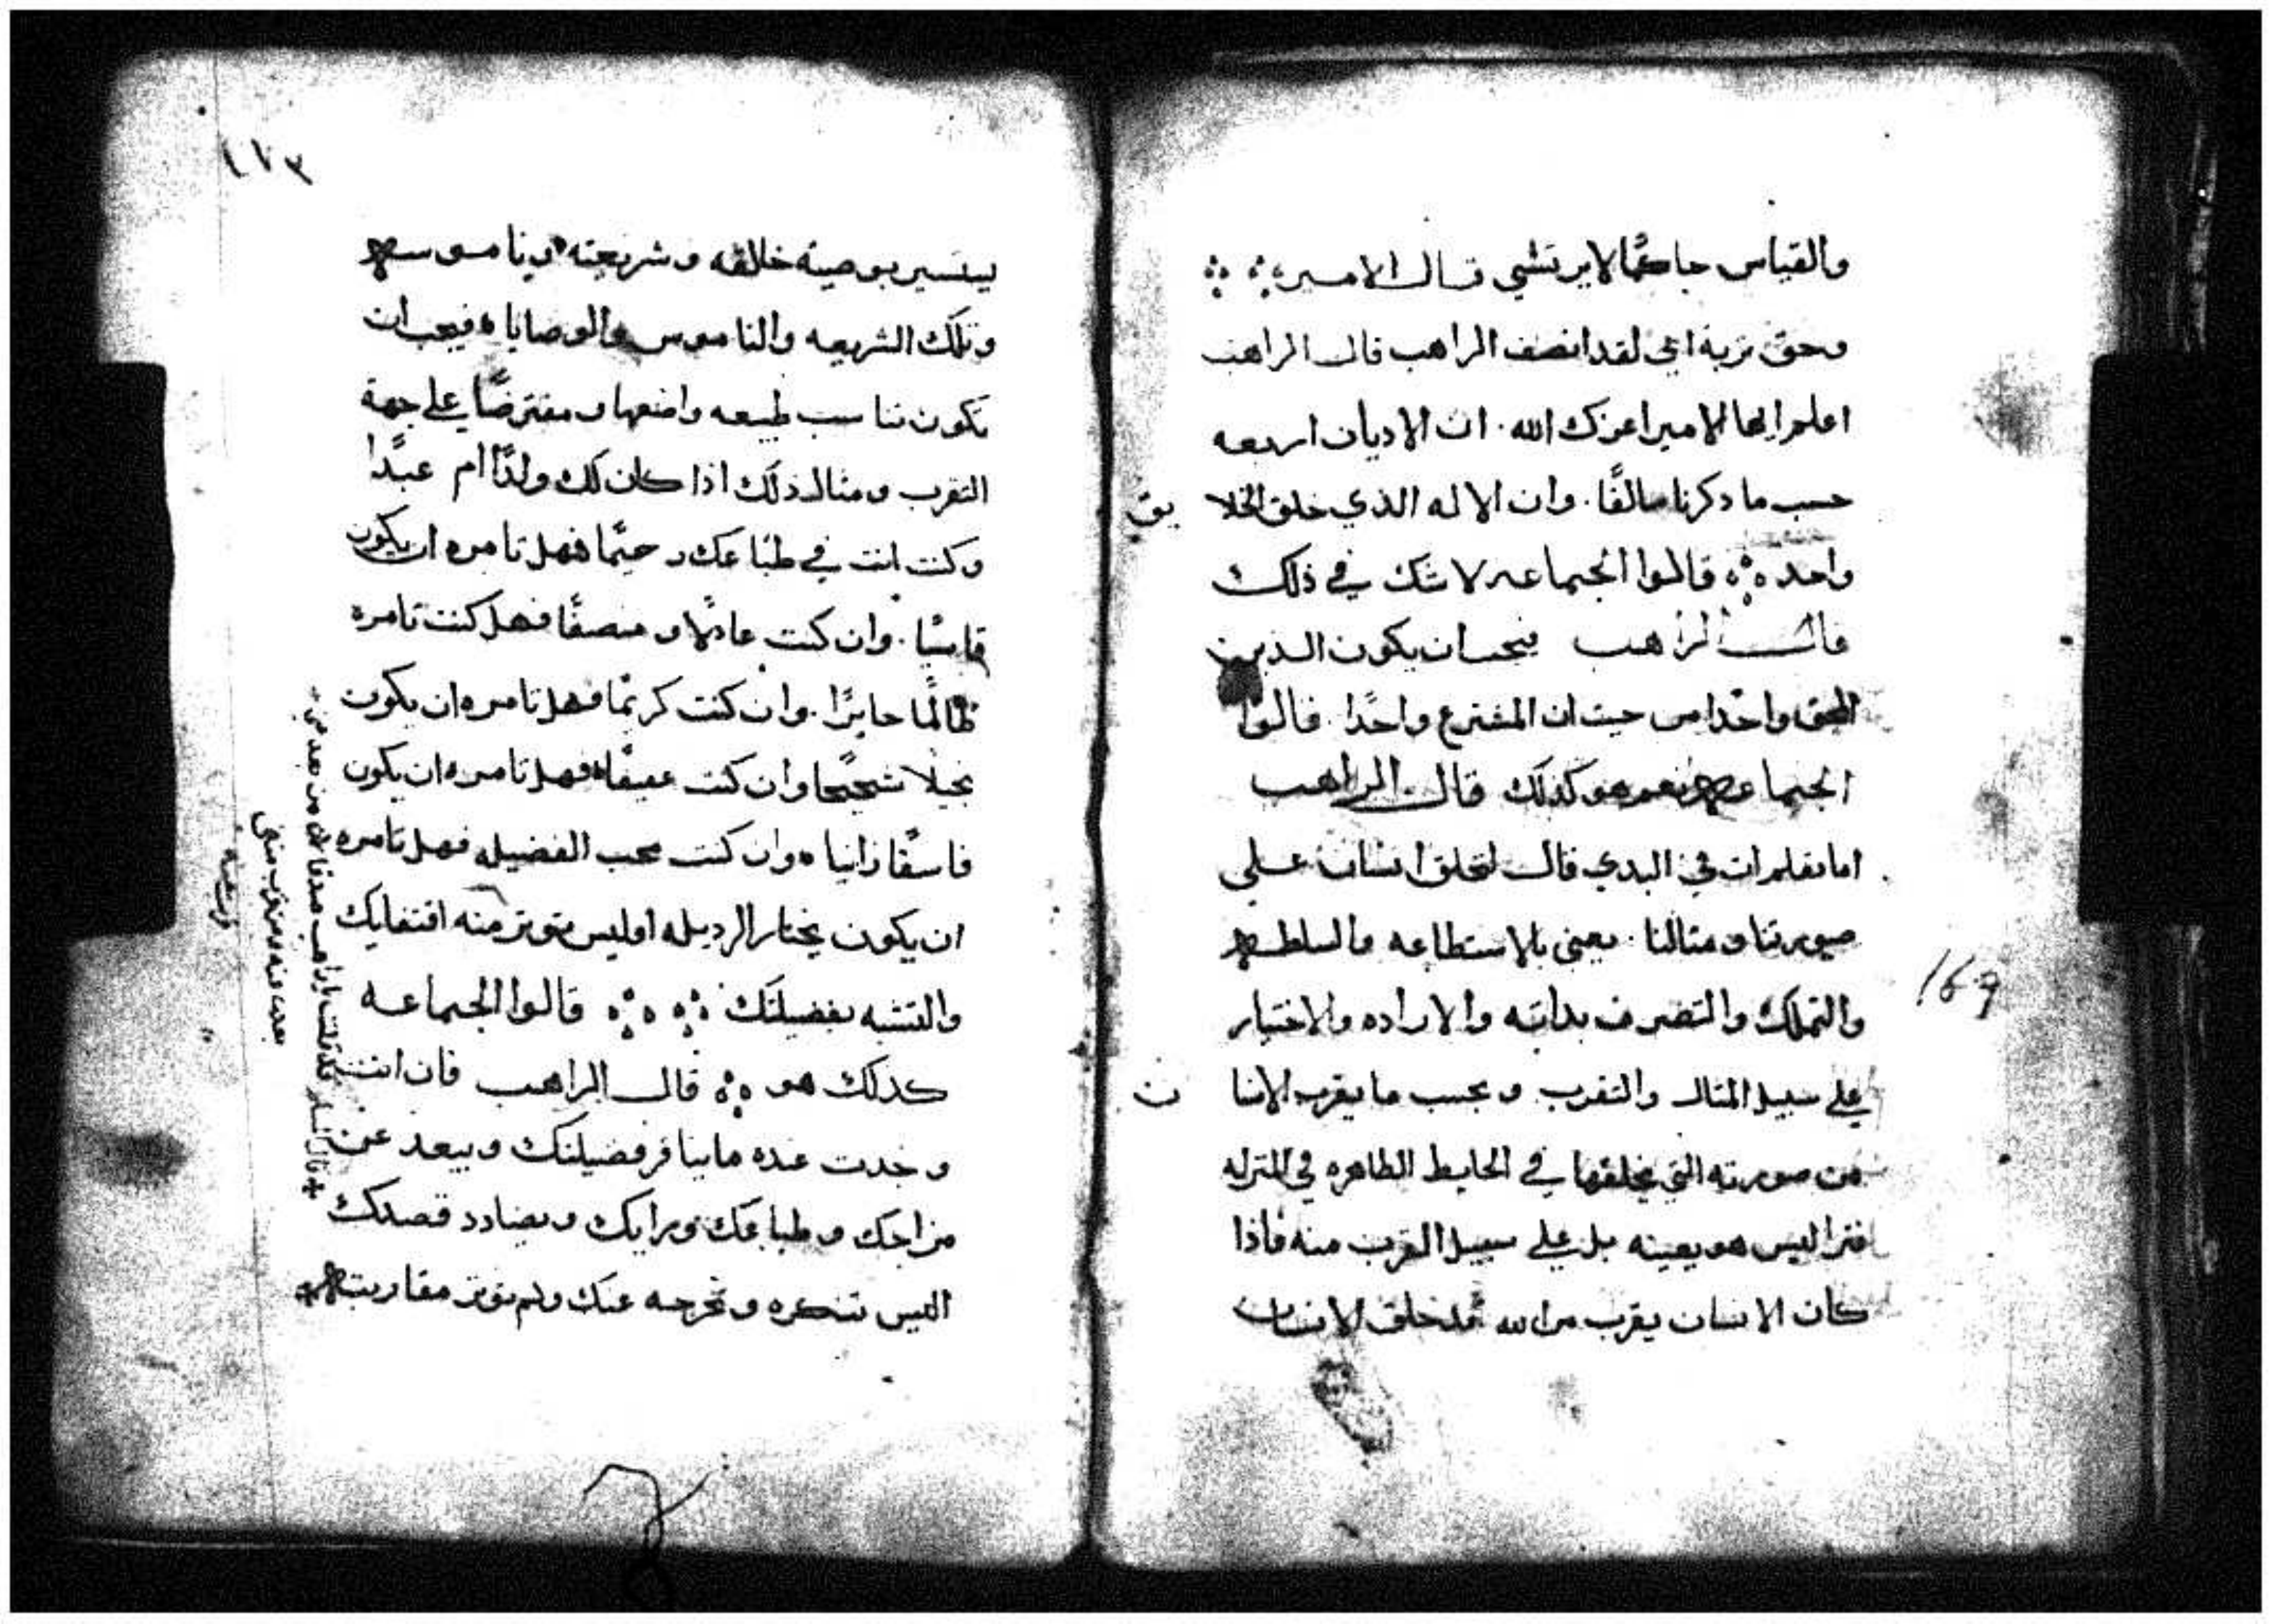 والقياس حاكمًا لا يرتشي قال الامير
وحق تربة اخي لقد انصف الراهب قال الراهب
اعلم ايها الامير اعزك الله. ان الاديان اربعه
حسب ما دكرنا سالفًا. وان الاله الذي خلق الخلايق
واحد قالوا الجماعه لا شك في ذلك
قال الراهب فيجب ان يكون الدين
الحق واحدا من حيت ان المشترع واحدًا. قالوا
الجماعه نعم هو كذلك قال الراهب
اما تعلم ان في البدي قال لنخلق انسان علي
صورتنا ومثالنا. يعني بالاستطاعه والسلطه
والتملك والتصرف بداته والاراده والاختيار
علي سبيل المثال والتقرب وبحسب ما يقرب الانسان
من صورته التي يخلقها في الحايط الظاهره في المنزله
فترا ليس هو بعينه بل علي سبيل القرب منه فاذا
كان الانسان يقرب من الله قد خلق الانسان
١٧٣
ليتسير بوصية خلاقه وشريعته وناموسه
وتلك الشريعه والناموس والوصايا فيجب ان
تكون تناسب طبيعه واضعها ومفترضًا علي جهة
التقرب ومثال ذلك اذا كان لك ولدًا ام عبدًا
وكنت انت في طباعك رحيمًا فهل تامره ان يكون
قاسيًا. وان كنت عادلا ومنصفًا فهل كنت تامره
ظالمًا جايرًا. وان كنت كريمًا فهل تامره ان يكون
بخيلا شحيحًا وان كنت عفيفًا فهل تامره ان يكون
فاسقًا زانيا وان كنت محب الفضيله فهل تامره
ان يكون يختار الرديله اوليس توتر منه اقتفايك
والتشبه بفضيلتك قالوا الجماعه
كدلك هو قال الراهب فان انت
وجدت عنده ما ينافر فضيلتك ويبعد عن
مزاجك وطباعك ورايك ويضادد قصدك
اليس تنكره وتخرجه عنك ولم توتر مقاربته
قال المسلم لقد قلت يا راهب صدقا لان من بعد مني
بعدت عنه ومن قرب مني
قربت منه
169